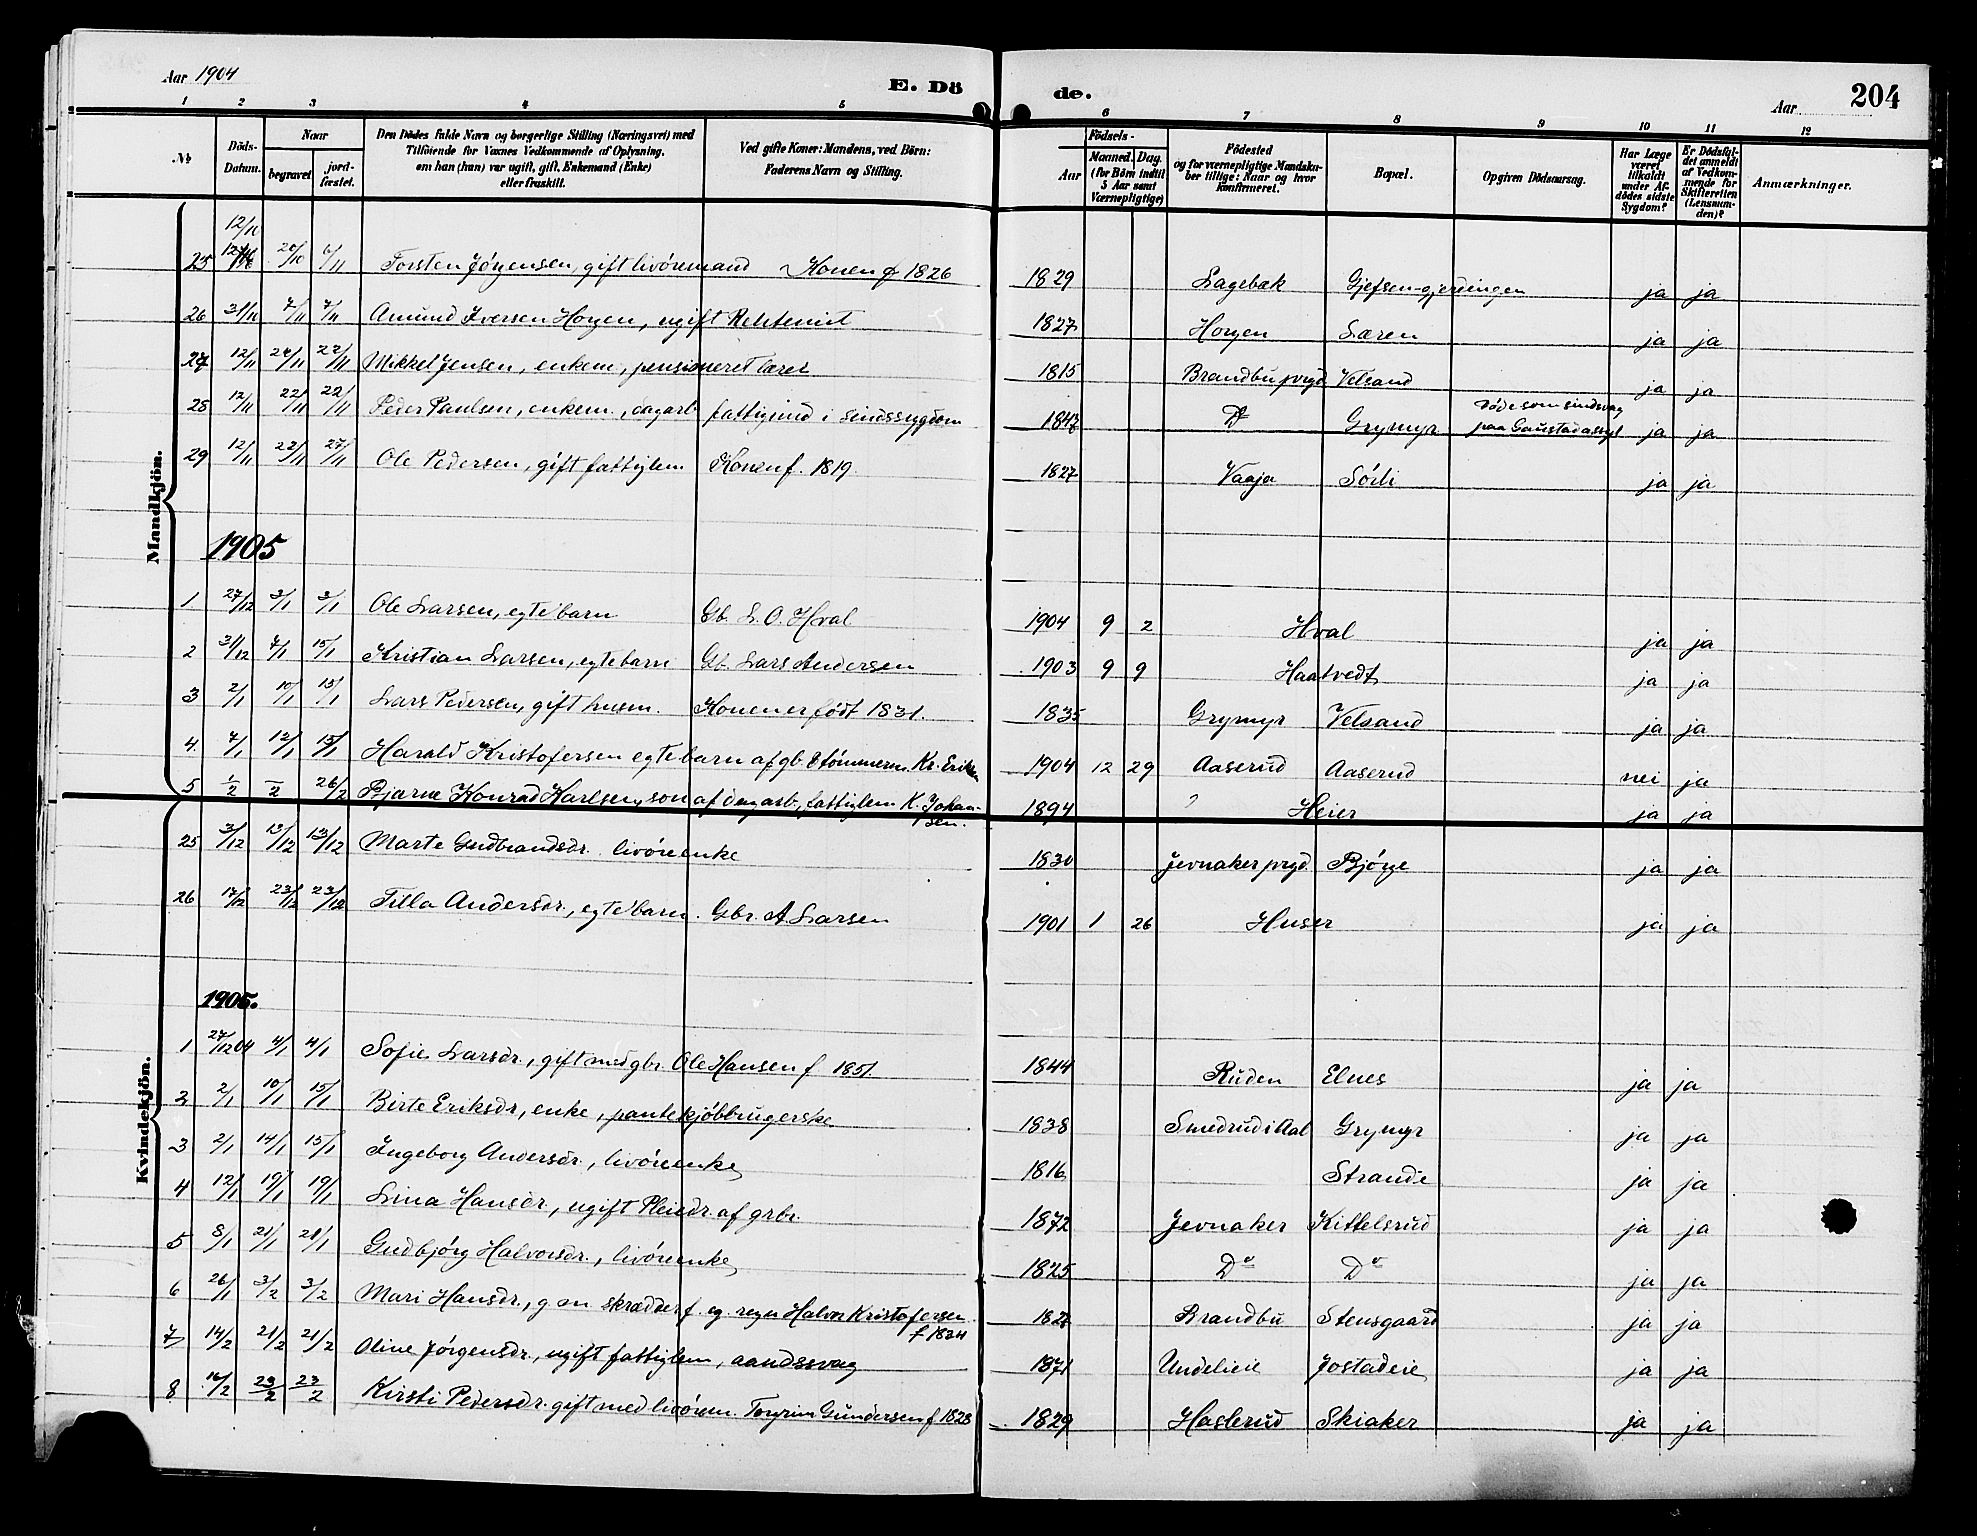 Aar 1904
E. Dö
de.
Aar
204
1 2 3 4 5 6 7 8 9 10 11 12
No
Döds-Datum.
Naar
begravet
jord-fæstet.
Den Dödes fulde Navn og borgerlige Stilling (Næringsvei) med
Tilföiende for Voxnes Vedkommende af Oplysning,
om han (hun) var ugift, gift, Enkemand (Enke)
eller fraskilt.
Ved gifte Koner: Mandens, ved Börn:
Faderens Navn og Stilling.
Födsels-
Aar
Maaned. Dag.
(for Börn indtil
5 Aar samt
Værnepligtige)
Födested
og for værnepligtige Mandska-
ber tillige: Naar og hvor
konfirmeret.
Bopæl.
Opgiven Dödsaarsag.
Har Læge
været
tilkaldt
under Af-
dödes sidste
Sygdom?
Er Dödsfal-
det anmeldt
af Vedkom-
mende for
Skifteretten
(Lensman-
den)?
Anmærkninger.
Mandkjön.
12/10
25 20/10 6/11 Torsten Jörgensen, gift livöremand Konen f 1826 1829 Lagebæk Gjefsen-gjerdingen ja ja
26 31/11 7/11 7/11 Amund Iversen Horgen, ugift 1827 Horgen Læren ja ja
27 12/11 22/11 22/11 Mikkel Jensen, enkem, pensioneret lærer 1815 Brandbu prgd Velsand ja ja
28 12/11 22/11 22/11 Peder Paulsen, enkem., dagarb fattigund i sindssygdom 1847 Do Grymyr Döde som sindsvag
paa Gaustad asyl ja ja
29 12/11 22/11 27/11 Ole Pedersen, gift fattiglem Konen f. 1819. 1827 Vaaja Söili ja ja
1905
1 27/12 3/1 3/1 Ole Larsen, egte barn Gb. L. O. Hval 1904 9 2 Hval ja ja
2 31/12 7/1 15/1 Kristian Larsen, egtebarn Gb. Lars Andersen 1903 9 9 Haatvedt ja ja
3 2/1 10/1 15/1 Lars Pedersen, gift husm. Konen er född 1831. 1835 Grymyr Velsand ja ja
4. 7/1 12/1 15/1 Harald Kristofersen egte barn af gb. & tömmerm. Kr. Eriksen 1904 12 29 Aaserud Aaserud nei ja
5 1/2 –/2 26/2 Bjarne Konrad Karlsen, son af dagarb, fattiglem K. Johan-
sen. 1894 ? Heier ja ja
Kvindekjön.
25 3/12 13/12 13/12 Marte Gudbrandsdr. livöreenke 1830 Jevnaker prgd. Björge ja ja
26 17/12 23/12 23/12 Tilla Andersdr, egte barn. Gbr. A Larsen 1901 1 26 Huser ja ja
1905.
1 27/12 04 4/1 4/1 Sofie Larsdr., gift med gbr. Ole Hansen f 1851. 1844 Ruden Elnes ja ja
2 2/1 10/1 15/1 Birte Eriksdr, enke, pantekjöbbrugerske 1838 Smedrud i Aal Grymyr ja ja
3 2/1 14/1 15/1 Ingeborg Andersdr., livöreenke 1816 Strande ja ja
4 12/1 19/1 19/1 Lina Hansdr, ugift Pleiedr. af grbr. 1872 Jevnaker Kittelsrud ja ja
5 8/1 21/1 21/1 Gudbjörg Halvorsdr., livöreenke 1825 Do Do ja ja
6 26/1 3/2 3/2 Mari Hansdr., g m skrædder f. eg. regn Halvor Kristofersen
f 1834 1827 Brandbu Stensgaard ja ja
7 14/2 21/2 21/2 Oline Jörgensdr., ugift fattiglem, aandssvag 1871 Undelieie Jostadeie ja ja
8 16/2 23/2 23/2 Kirsti Pedersdr. gift med livörem. Torgrim Gundersen f 1828 1829 Haslerud Skiaker ja ja